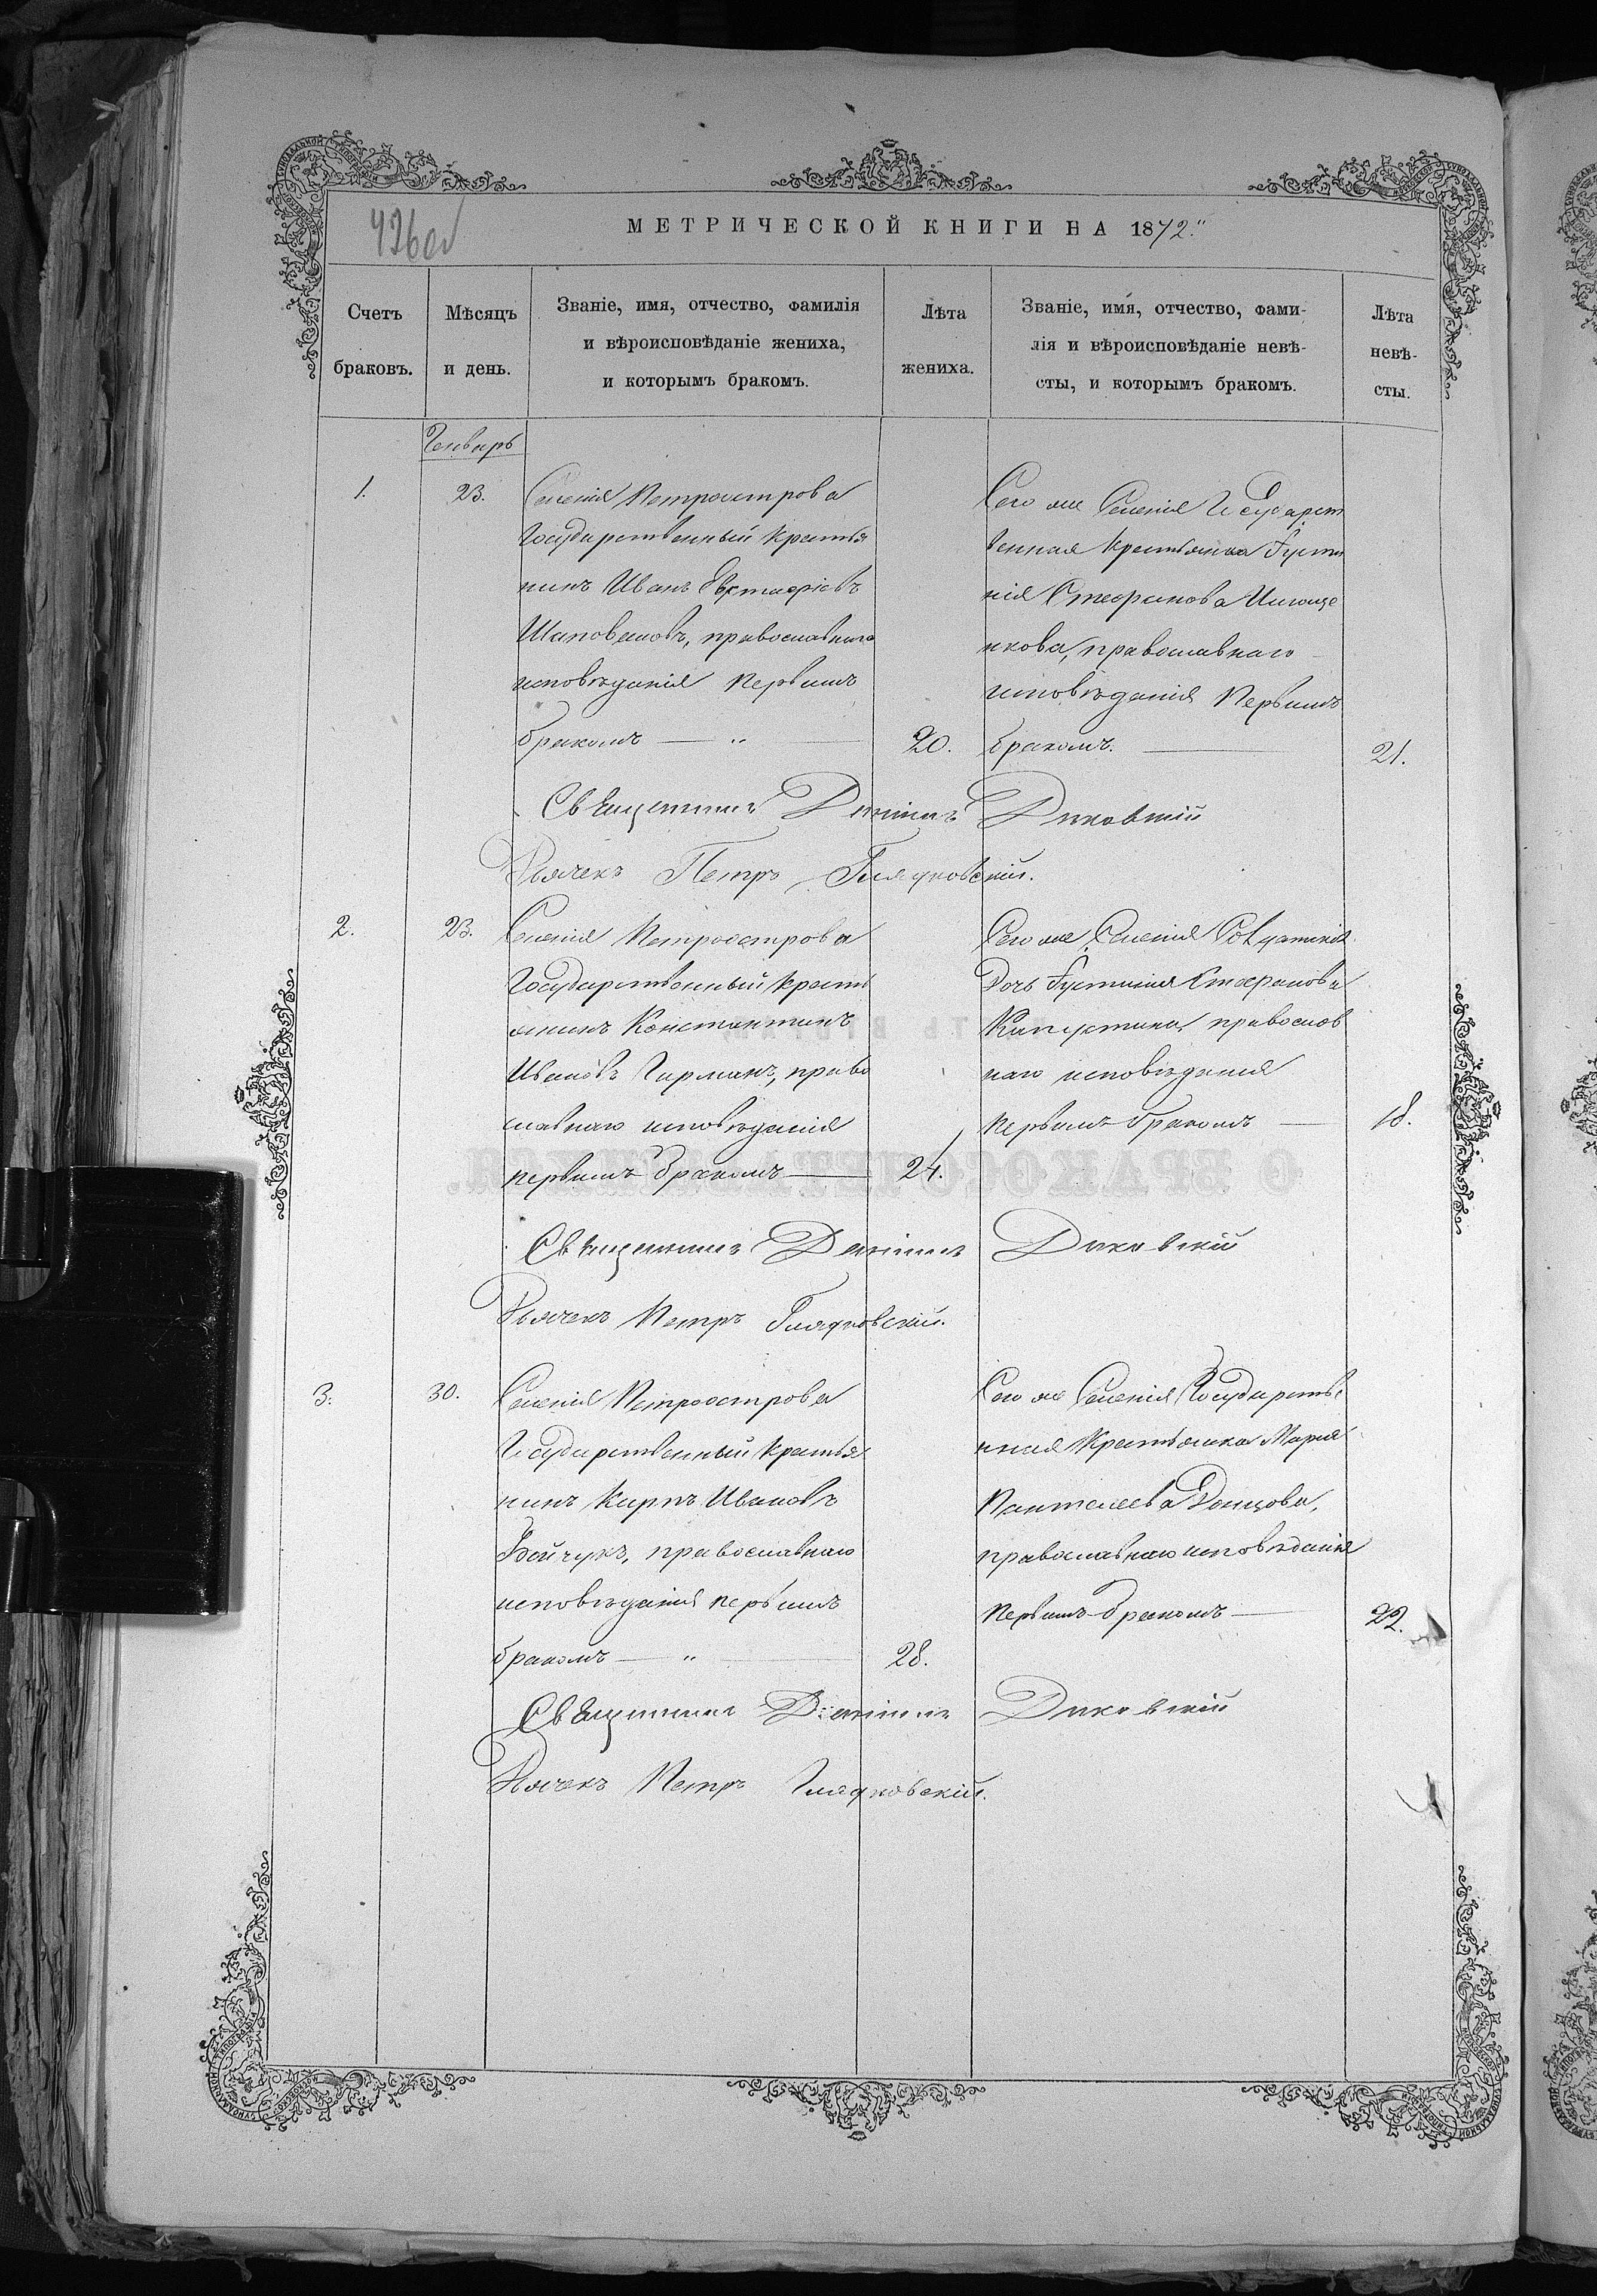 426об
МЕТРИЧЕСКОЙ КНИГИ НА 1872"
Счетъ браковъ.
Мѣсяцъ и день.
Званіе, имя, отчество, фамилія
и вѣроисповѣданіе жениха,
и которымъ бракомъ.
Лѣта жениха.
Званіе, имя, отчество, фами-
лія и вѣроисповѣданіе невѣ-
сты, и которымъ бракомъ.
Лѣта невѣ-
сты.
Генварь
1.
23.
Селенія Петроострова
Государственный крестья
нинъ Иванъ Евстафіевъ
Шаповаловъ, православнаго
исповѣданія первымъ
бракомъ — „ —
20.
Сего же Селенія Государст
венная крестьянка Густи
нія Стефанова
нкова, православнаго
исповѣданія первымъ
бракомъ. —
21.
Священникъ Даніилъ Диковскій
Дьячекъ Петръ Гладковскій.
2.
23.
Селенія Петроострова
Государственный кресть
янинъ Константинъ
Ивановъ Гирманъ, право
славнаго исповѣданія
первымъ бракомъ —
24.
Сего же Селенія
дочь Густинія Стефанова
Капустина, православ
наго исповѣданія
первымъ бракомъ —
18.
Священникъ Даніилъ Диковскій
Дьячекъ Петръ Гладковскій.
3.
30.
Селенія Петроострова
Государственный крестья
нинъ Карпъ Ивановъ
Бойчукъ, православнаго
исповѣданія первымъ
бракомъ — „ —
28.
Сего же Селенія Государстве
нная крестьянка Марія
Пантелеева Донцова,
православнаго исповѣданія
первымъ бракомъ —
22.
Священникъ Даніилъ Диковскій
Дьячекъ Петръ Гладковскій.